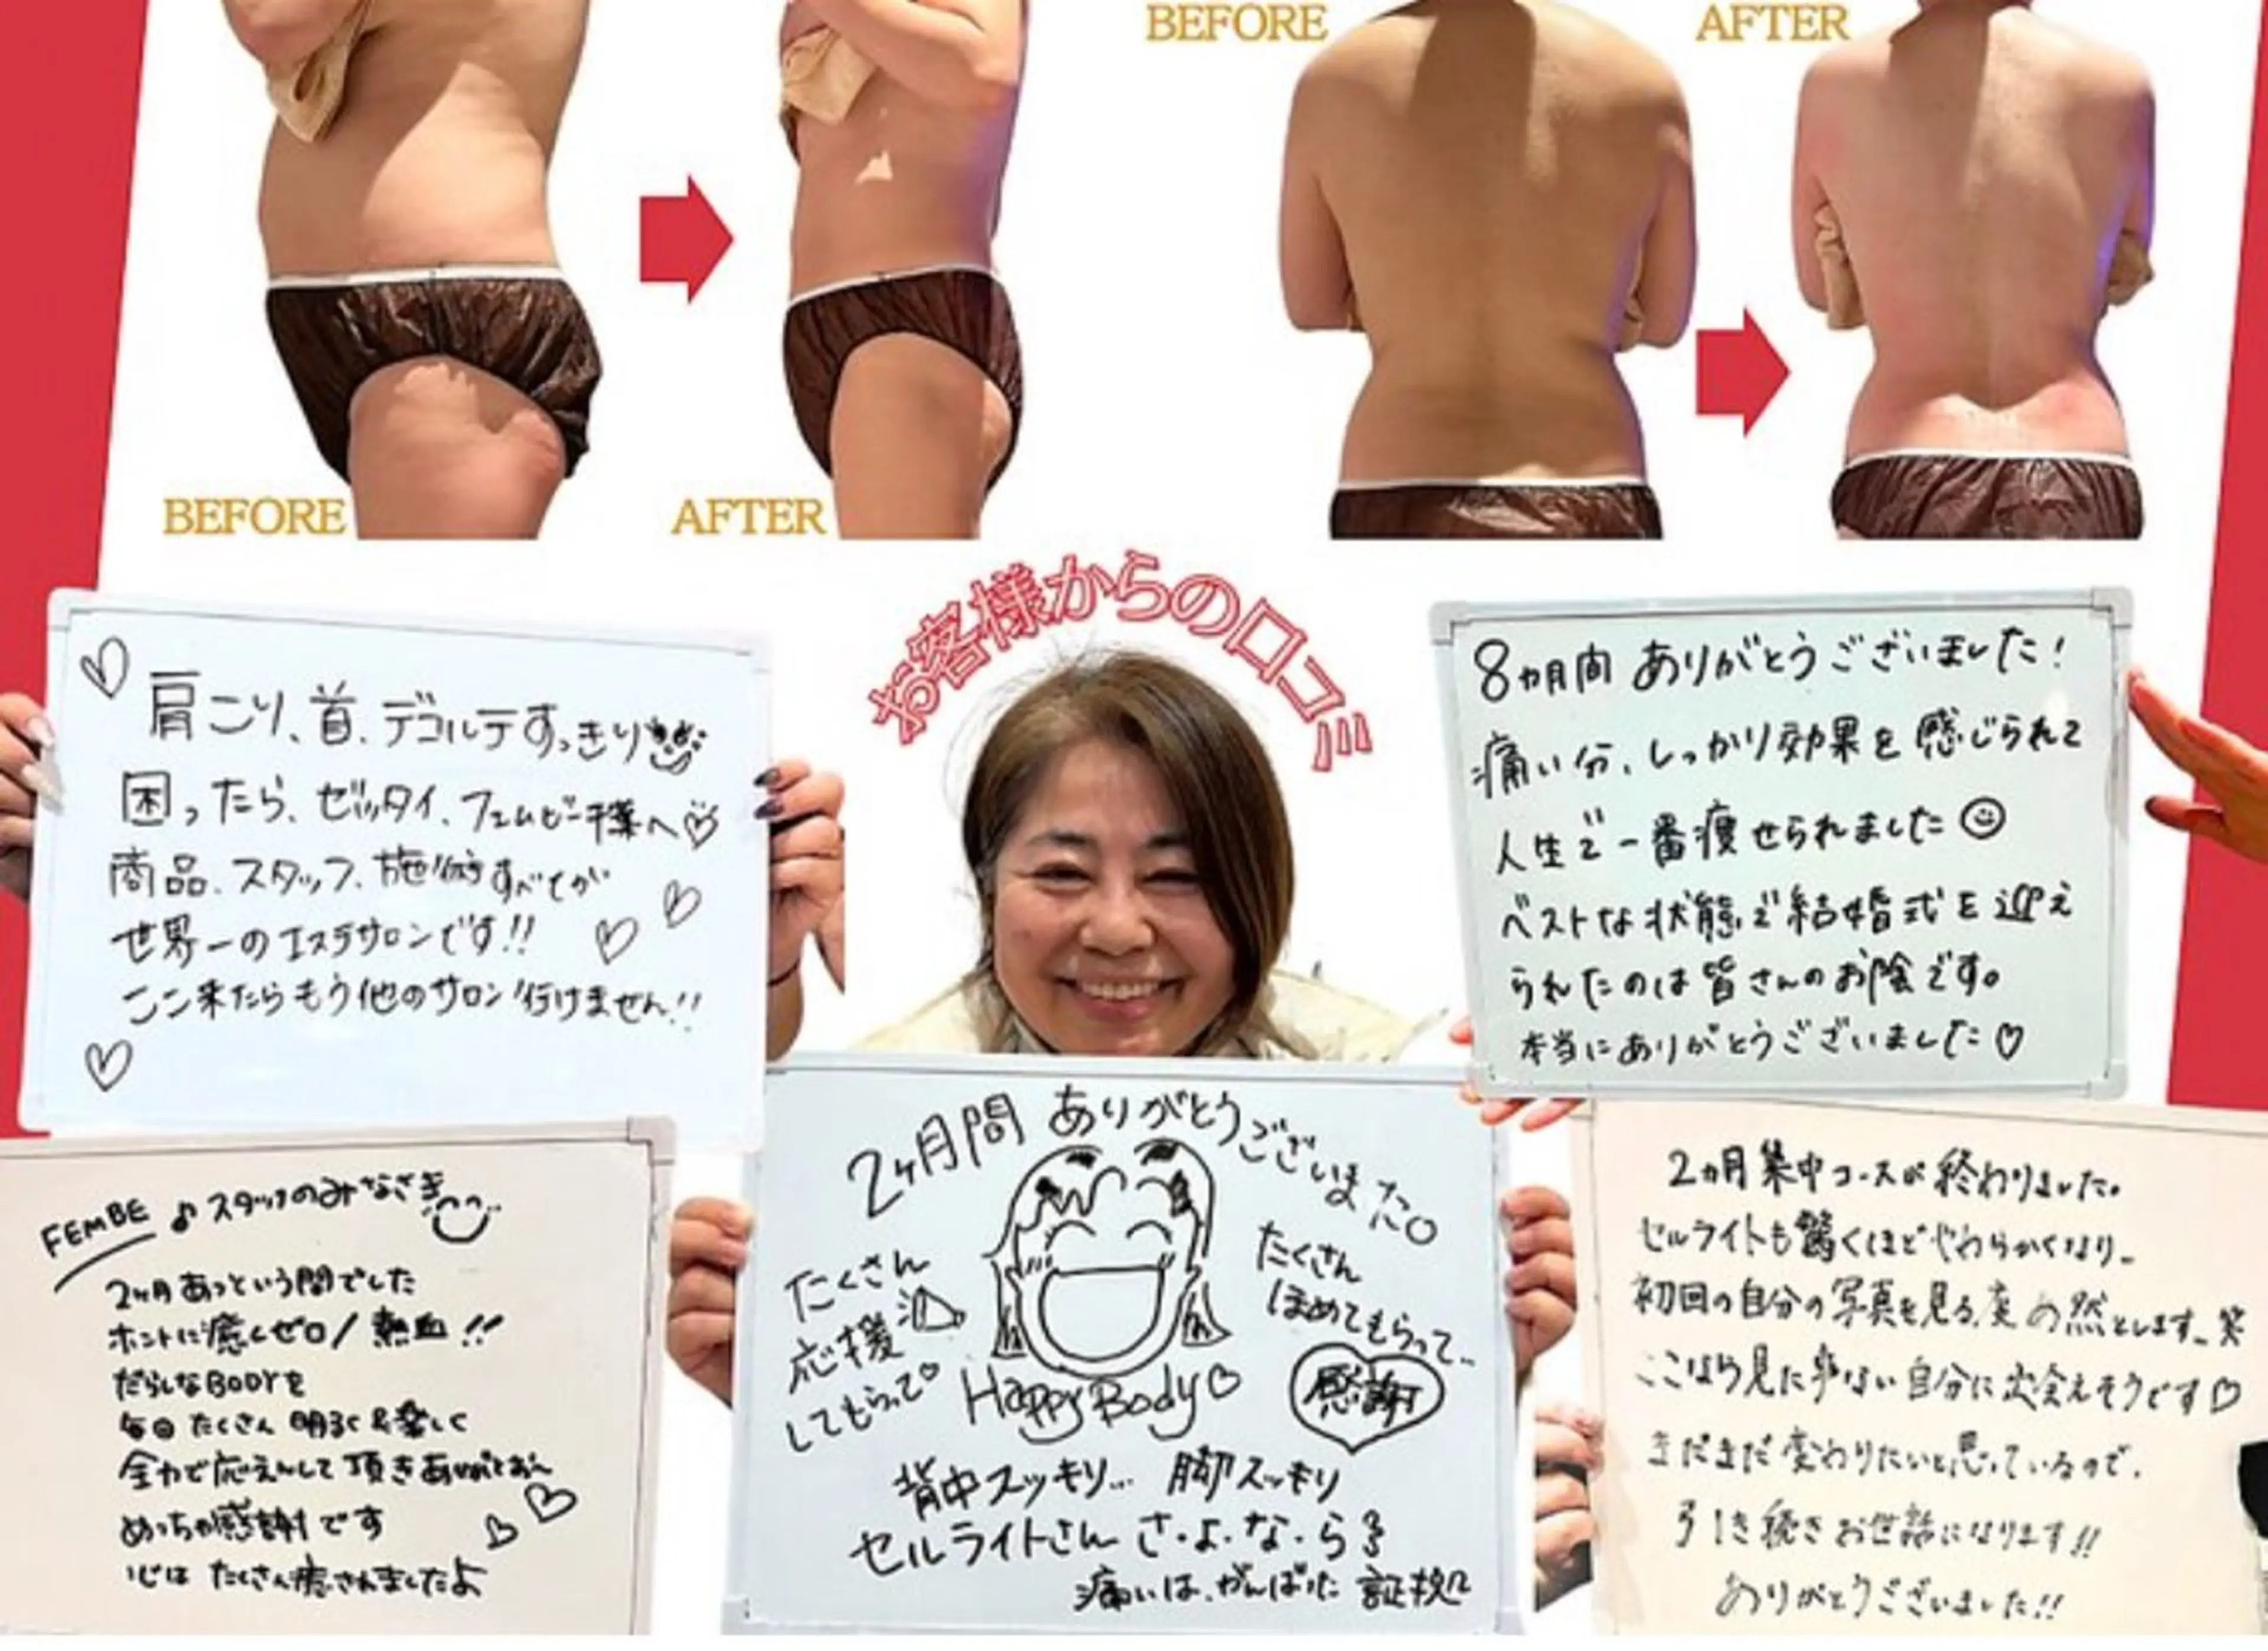 BEFORE
AFTER
BEFORE
AFTER
お客様からの口コミ
肩こり、首、デコルテすっきり
困ったら、ゼッタイ、フェムビー千葉へ
商品、スタッフ、施術すべてが
世界一のエステサロンです!!
ここ来たらもう他のサロン行けません!!
8カ月間 ありがとうございました!
痛い分、しっかり効果を感じられて
人生で一番痩せられました
ベストな状態で結婚式を迎え
られたのは皆さんのお陰です。
本当にありがとうございました♡
FEMBE ♪スタッフのみなさま
2ヶ月あっという間でした
ホントに癒しゼロ/熱血!!
だらしなBODYを
毎回たくさん明るく&楽しく
全力で応えんして頂きありがとおへ
めっちゃ感謝です
心はたくさん癒されましたよ
2ヶ月間 ありがとうございました。
たくさん
応援
してもらって
たくさん
ほめてもらって..
感謝
Happy Body♡
背中スッキリ... 脚スッキリ
セルライトさん さ・よ・な・ら
痛いは、がんばった 証拠
2カ月集中コースが終わりました。
セルライトも驚くほどやわらかくなり、
初回の自分の写真を見る度 然とします、笑
ここなら見た事ない自分に出会えそうです♡
まだまだ変わりたいと思っているので、
引き続きお世話になります!!
ありがとうございました!!